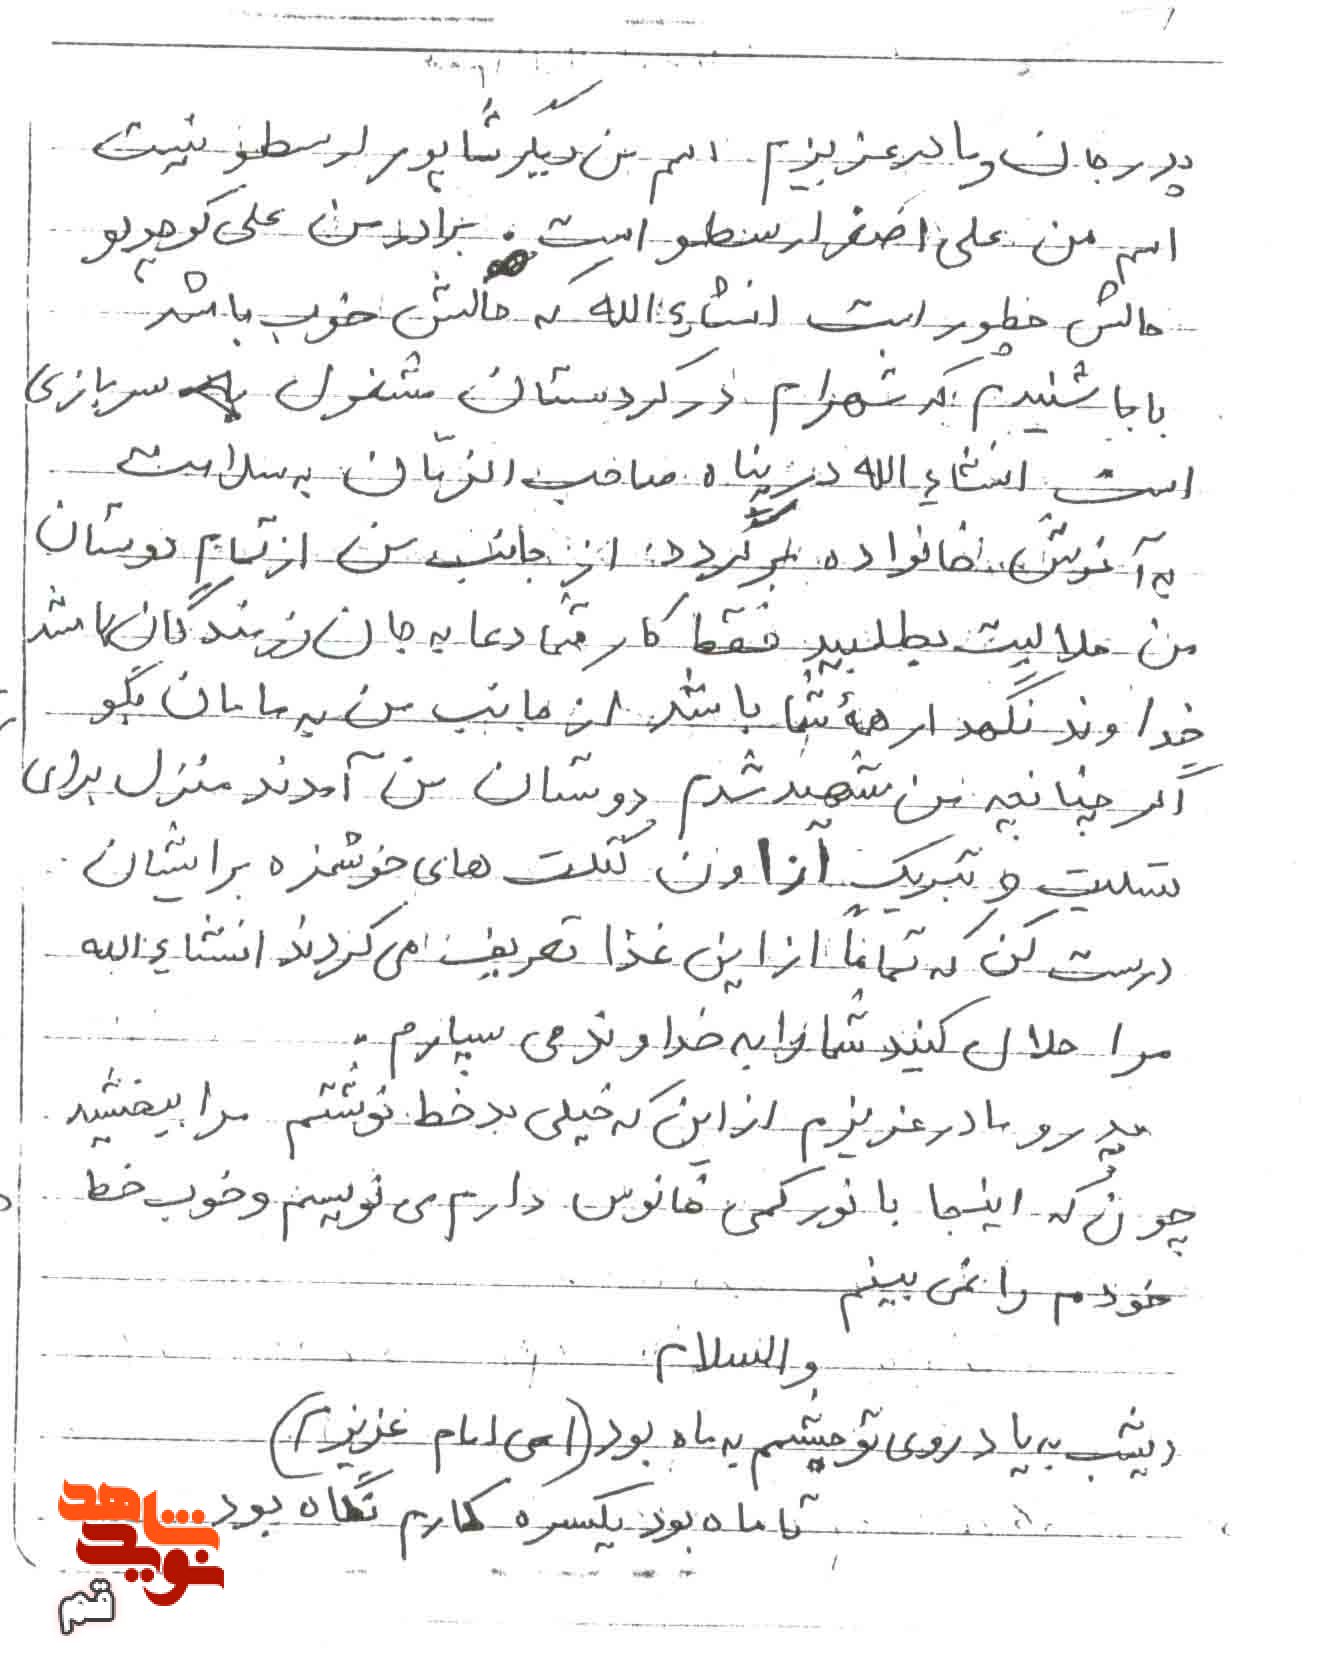 پدر جان و مادر عزیزم اسم من دیگر شاپور ارسطو نیست
اسم من علی اصغر ارسطو است. برادر من علی کوچولو
حالش چطور است انشاءالله که حالش خوب باشد
باباجان شنیدم که شهرام در کردستان مشغول به سربازی
است انشاءالله در پناه صاحب الزمان به سلامت
به آغوش خانواده برگردد از جانب من از تمام دوستان
من حلالیت بطلبید فقط کار شما دعا به جان رزمندگان باشد
خداوند نگهدار همهٔ شما باشد از جانب من به مامان بگو
اگر چنانچه من شهید شدم دوستان من آمدند منزل برای
تسلیت و تبریک از اون کتلت های خوشمزه برایشان
درست کن که تماماً از این غذا تعریف می کردند انشاءالله
مرا حلال کنید شما را به خداوند می سپارم.
پدر و مادر عزیزم از این که خیلی بد خط نوشتم مرا ببخشید
چون که اینجا با نور کمی فانوس دارم می نویسم و خوب خط
خودم را نمی بینم
والسلام
دیشب به یاد روی تو چشمم به ماه بود (ای امام عزیزم)
تا ماه بود یکسره کارم نگاه بود
نوید شاهد
قم